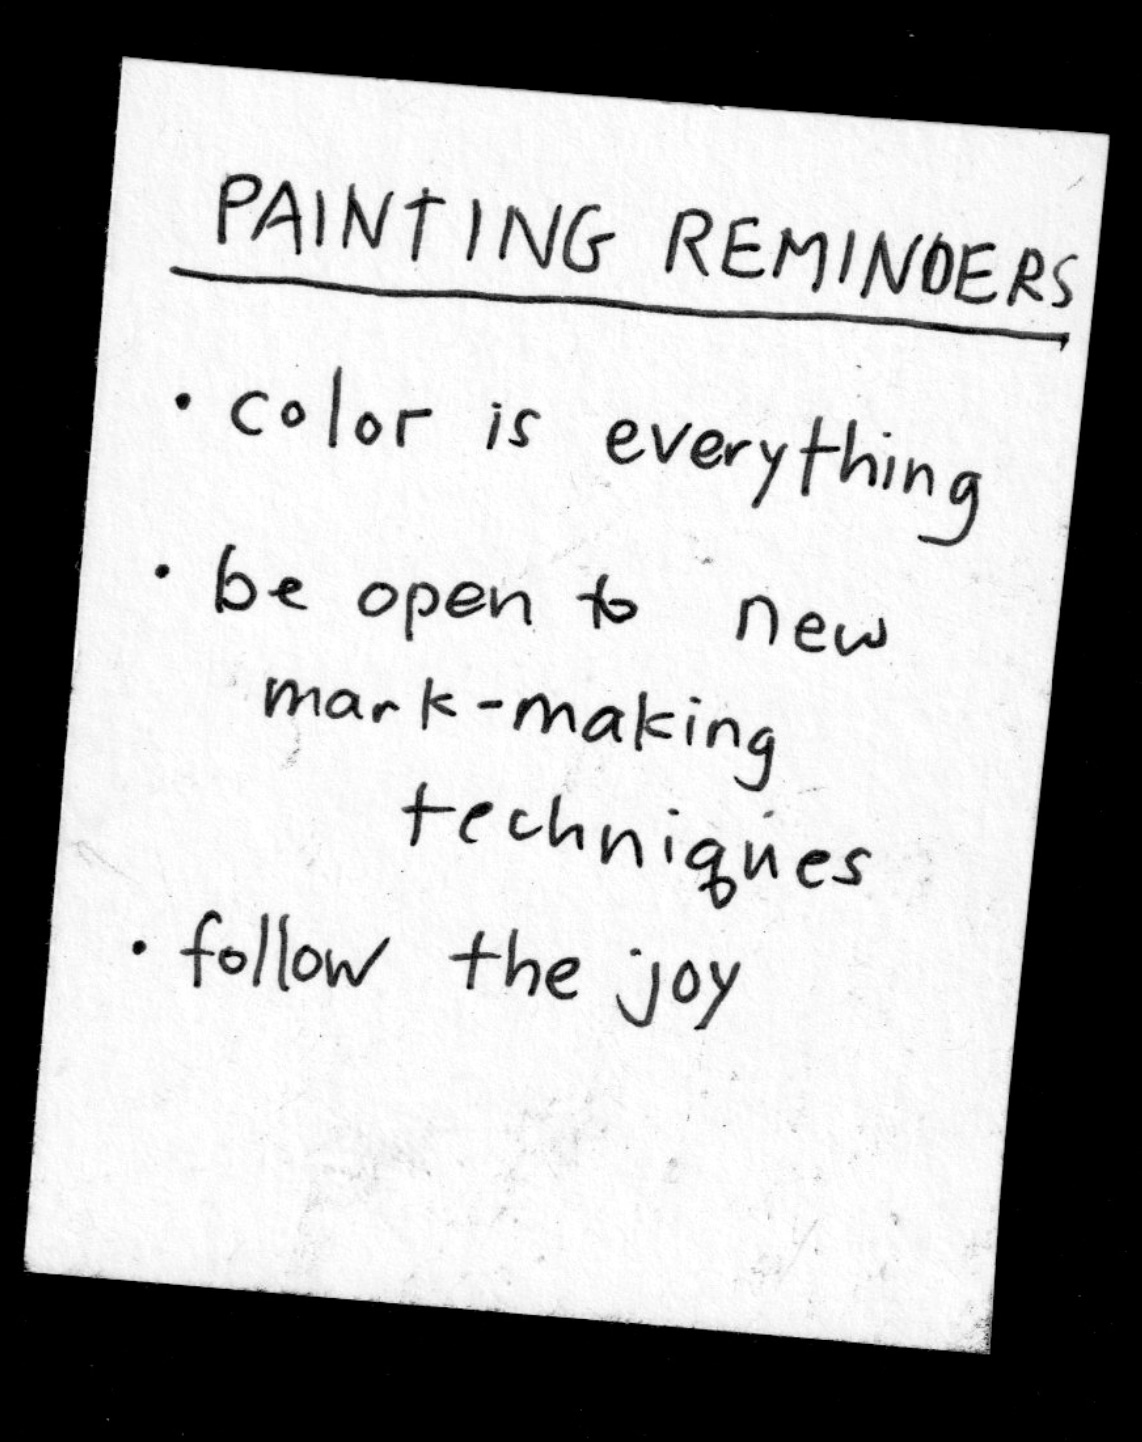 PAINTING REMINDERS
• color is everything
• be open to new
mark-making
techniques
• follow the joy